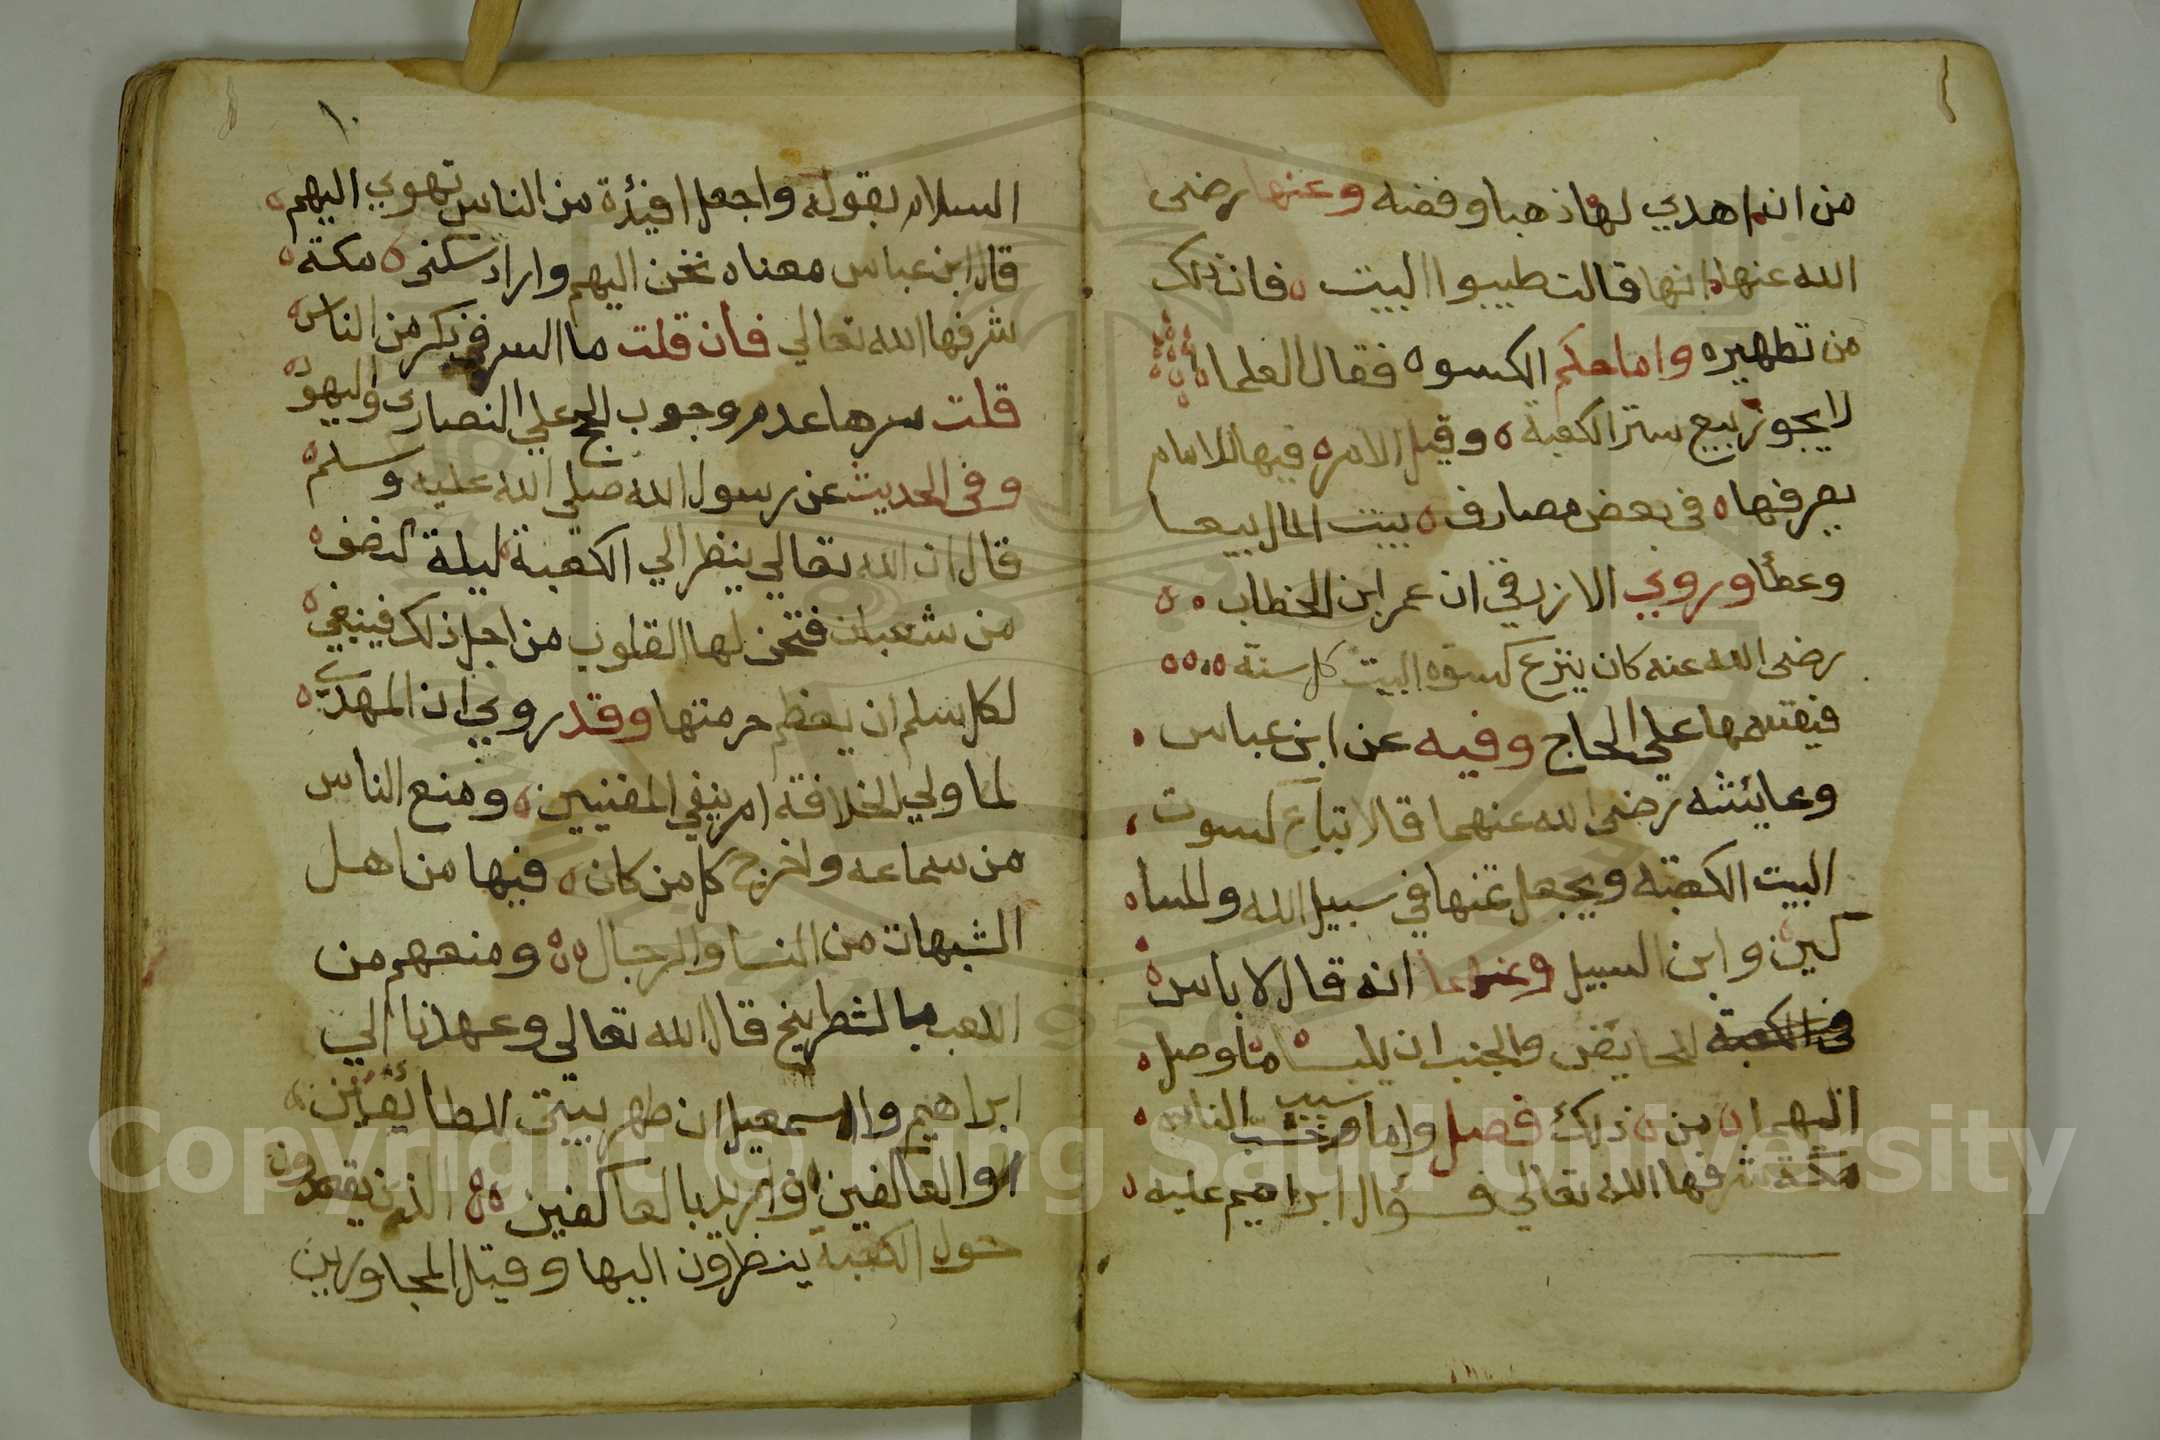 من انم اهدي لها ذهبا وفضه وعنها رضى
الله عنها انها قالت طيبوا البيت فان ذلك
من تطهيره واما حكم الكسوه فقال العلما
لا يجوز بيع ستر الكعبة وقيل الامر فيها للامام
يصرفها في بعض مصارف بيت المال بيعا
وعطأ وروي الازرقي ان عمر ابن الخطاب
رضى الله عنه كان ينزع كسوه البيت كل سنة
فيقسمها على الحاج وفيه عن ابن عباس
وعايشه رضى الله عنهما قالا تباع كسوت
البيت الكعبه ويجعل ثمنها في سبيل الله والمسا
كين وابن السبيل وعنهما انه قال لا باس
للحايض والجنب ان يلبسا ما وصل
اليهم من ذلك فصل واما سبب حب الناس
مكة شرفها الله تعالي فسؤال ابراهيم عليه
١٠
السلام بقوله واجعل افئدة من الناس تهوي اليهم
قال ابن عباس معناه تحن اليهم واراد سكنى مكة
شرفها الله تعالي فان قلت ما السر في ذكر من الناس
قلت سرها عدم وجوب الحج علي النصارى واليهود
وفى الحديث عن رسول الله صلي الله عليه وسلم
قال ان الله تعالي ينظر الي الكعبة ليلة نصف
من شعبان فتحن لها القلوب من اجل ذلك فينبغي
لكل مسلم ان يعظم حرمتها وقد روي ان المهدي
لما ولي الخلافة امر بنفي المغنيين ومنع الناس
من سماعه واخرج كل من كان فيها من اهل
الشبهات من النسا والرجال ومنعهم من
اللعب بالشطرينج قال الله تعالي وعهدنا الي
ابراهيم واسمعيل ان طهر بيتى للطائفين
والعاكفين واريد بالعاكفين الذين يقعدون
حول الكعبة ينظرون اليها وقيل المجاورين
Copyright © King Saud University